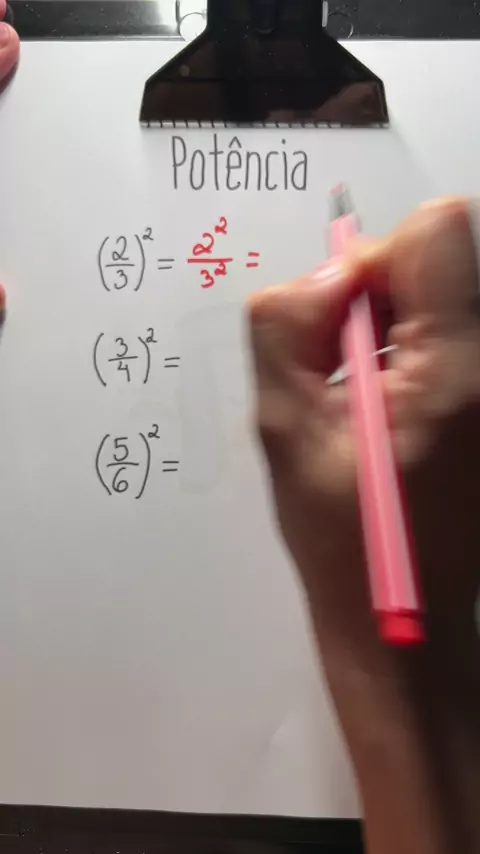 Potência
(2/3)² = 2²/3² =
(3/4)² =
(5/6)² =